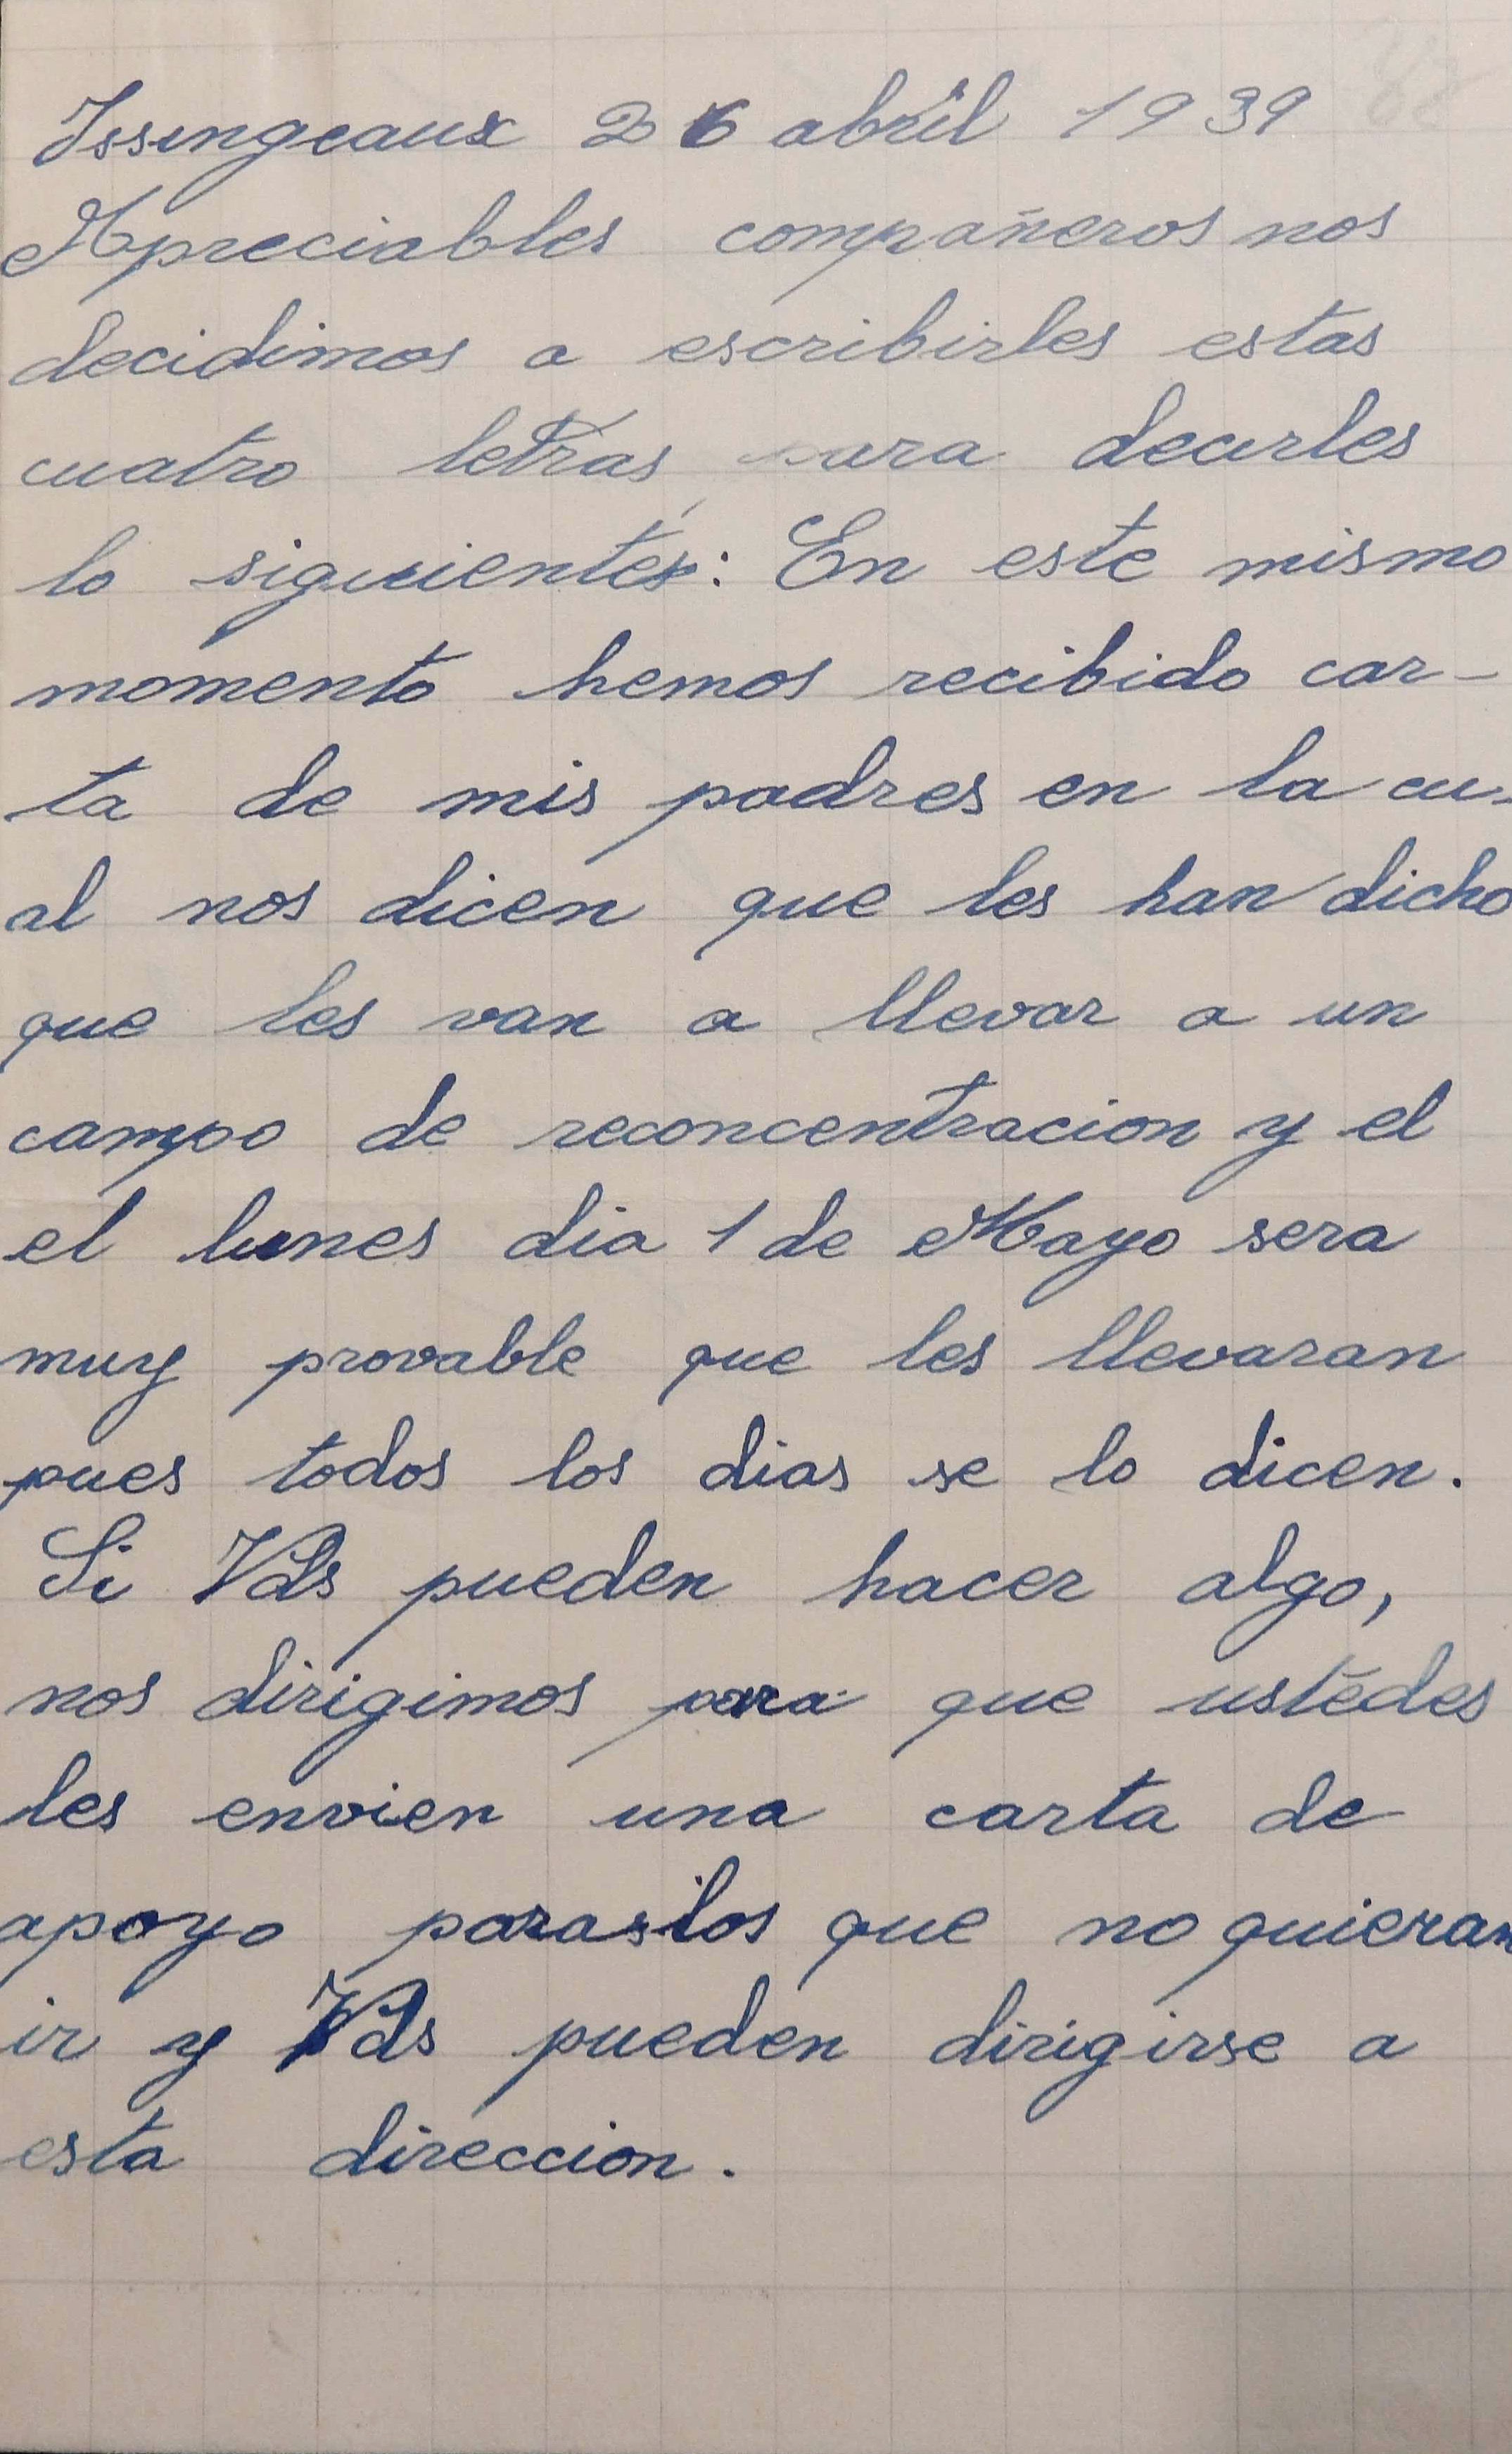 Issingeaux 26 abril 1939
Apreciables compañeros nos
decidimos a escribirles estas
cuatro letras para decirles
lo siguientes: En este mismo
momento hemos recibido car-
ta de mis padres en la cu-
al nos dicen que les han dicho
que les van a llevar a un
campo de reconcentracion y el
el lunes dia 1 de Mayo sera
muy provable que les llevaran
pues todos los dias se lo dicen.
Si Vds pueden hacer algo,
nos dirigimos para que ustedes
les envien una carta de
apoyo para los que no quieran
ir y Vds pueden dirigirse a
esta direccion.